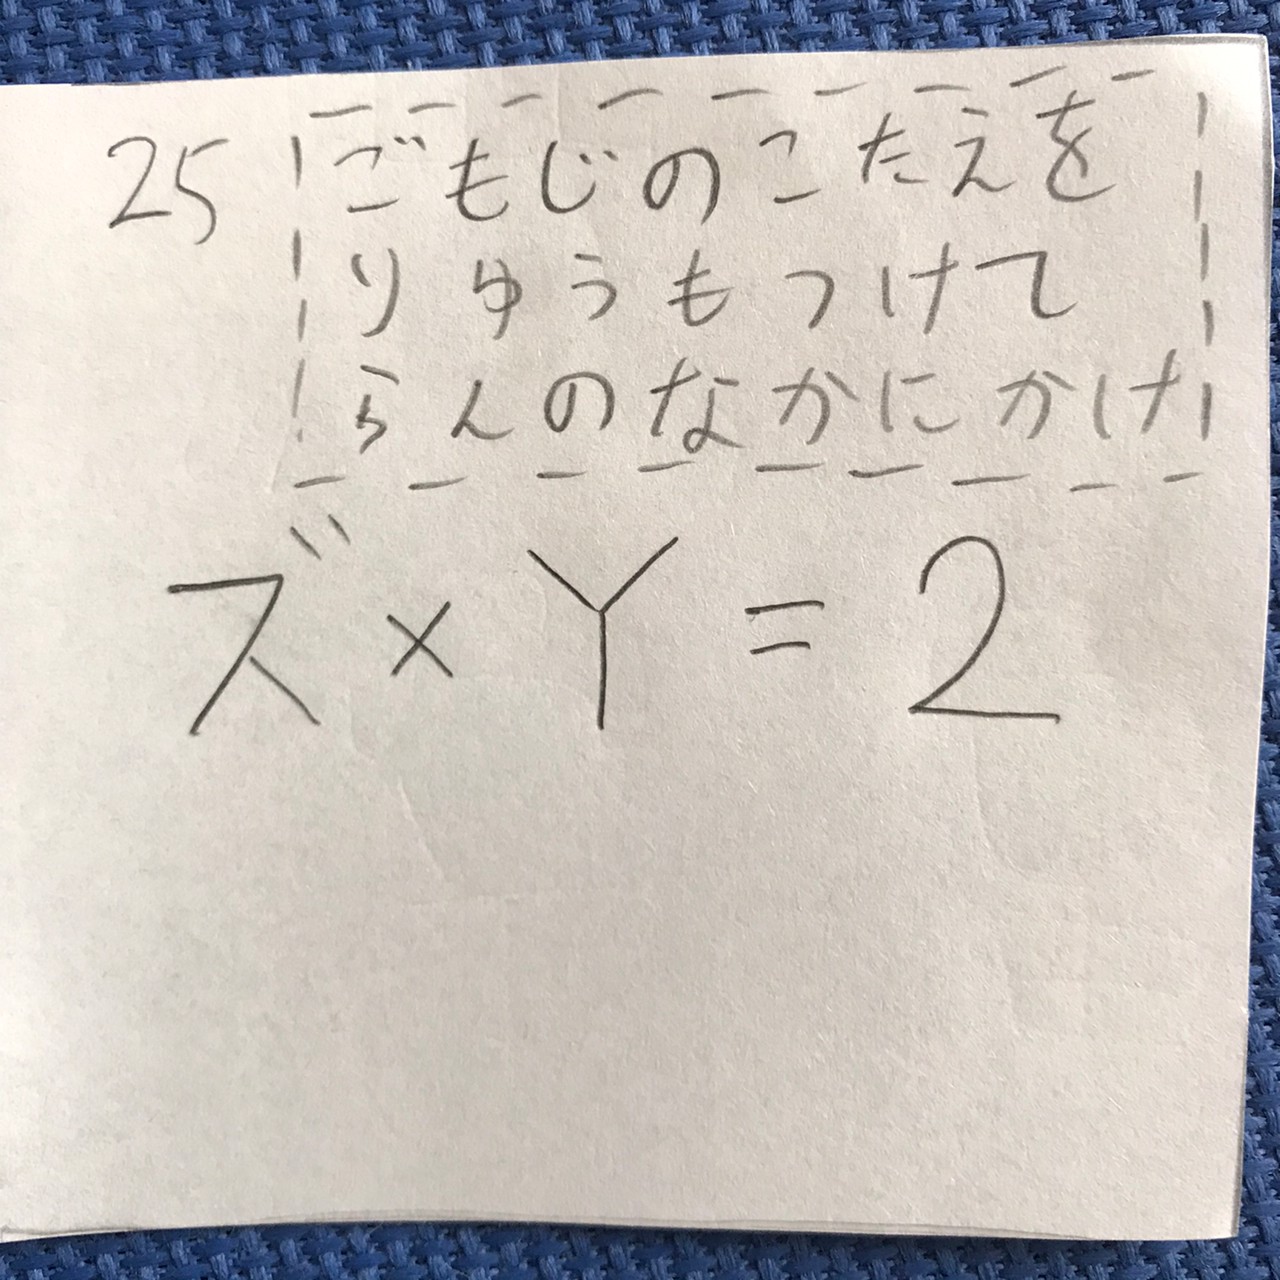 25 ごもじのこたえを
りゆうもつけて
らんのなかにかけ
ズ×Y=2